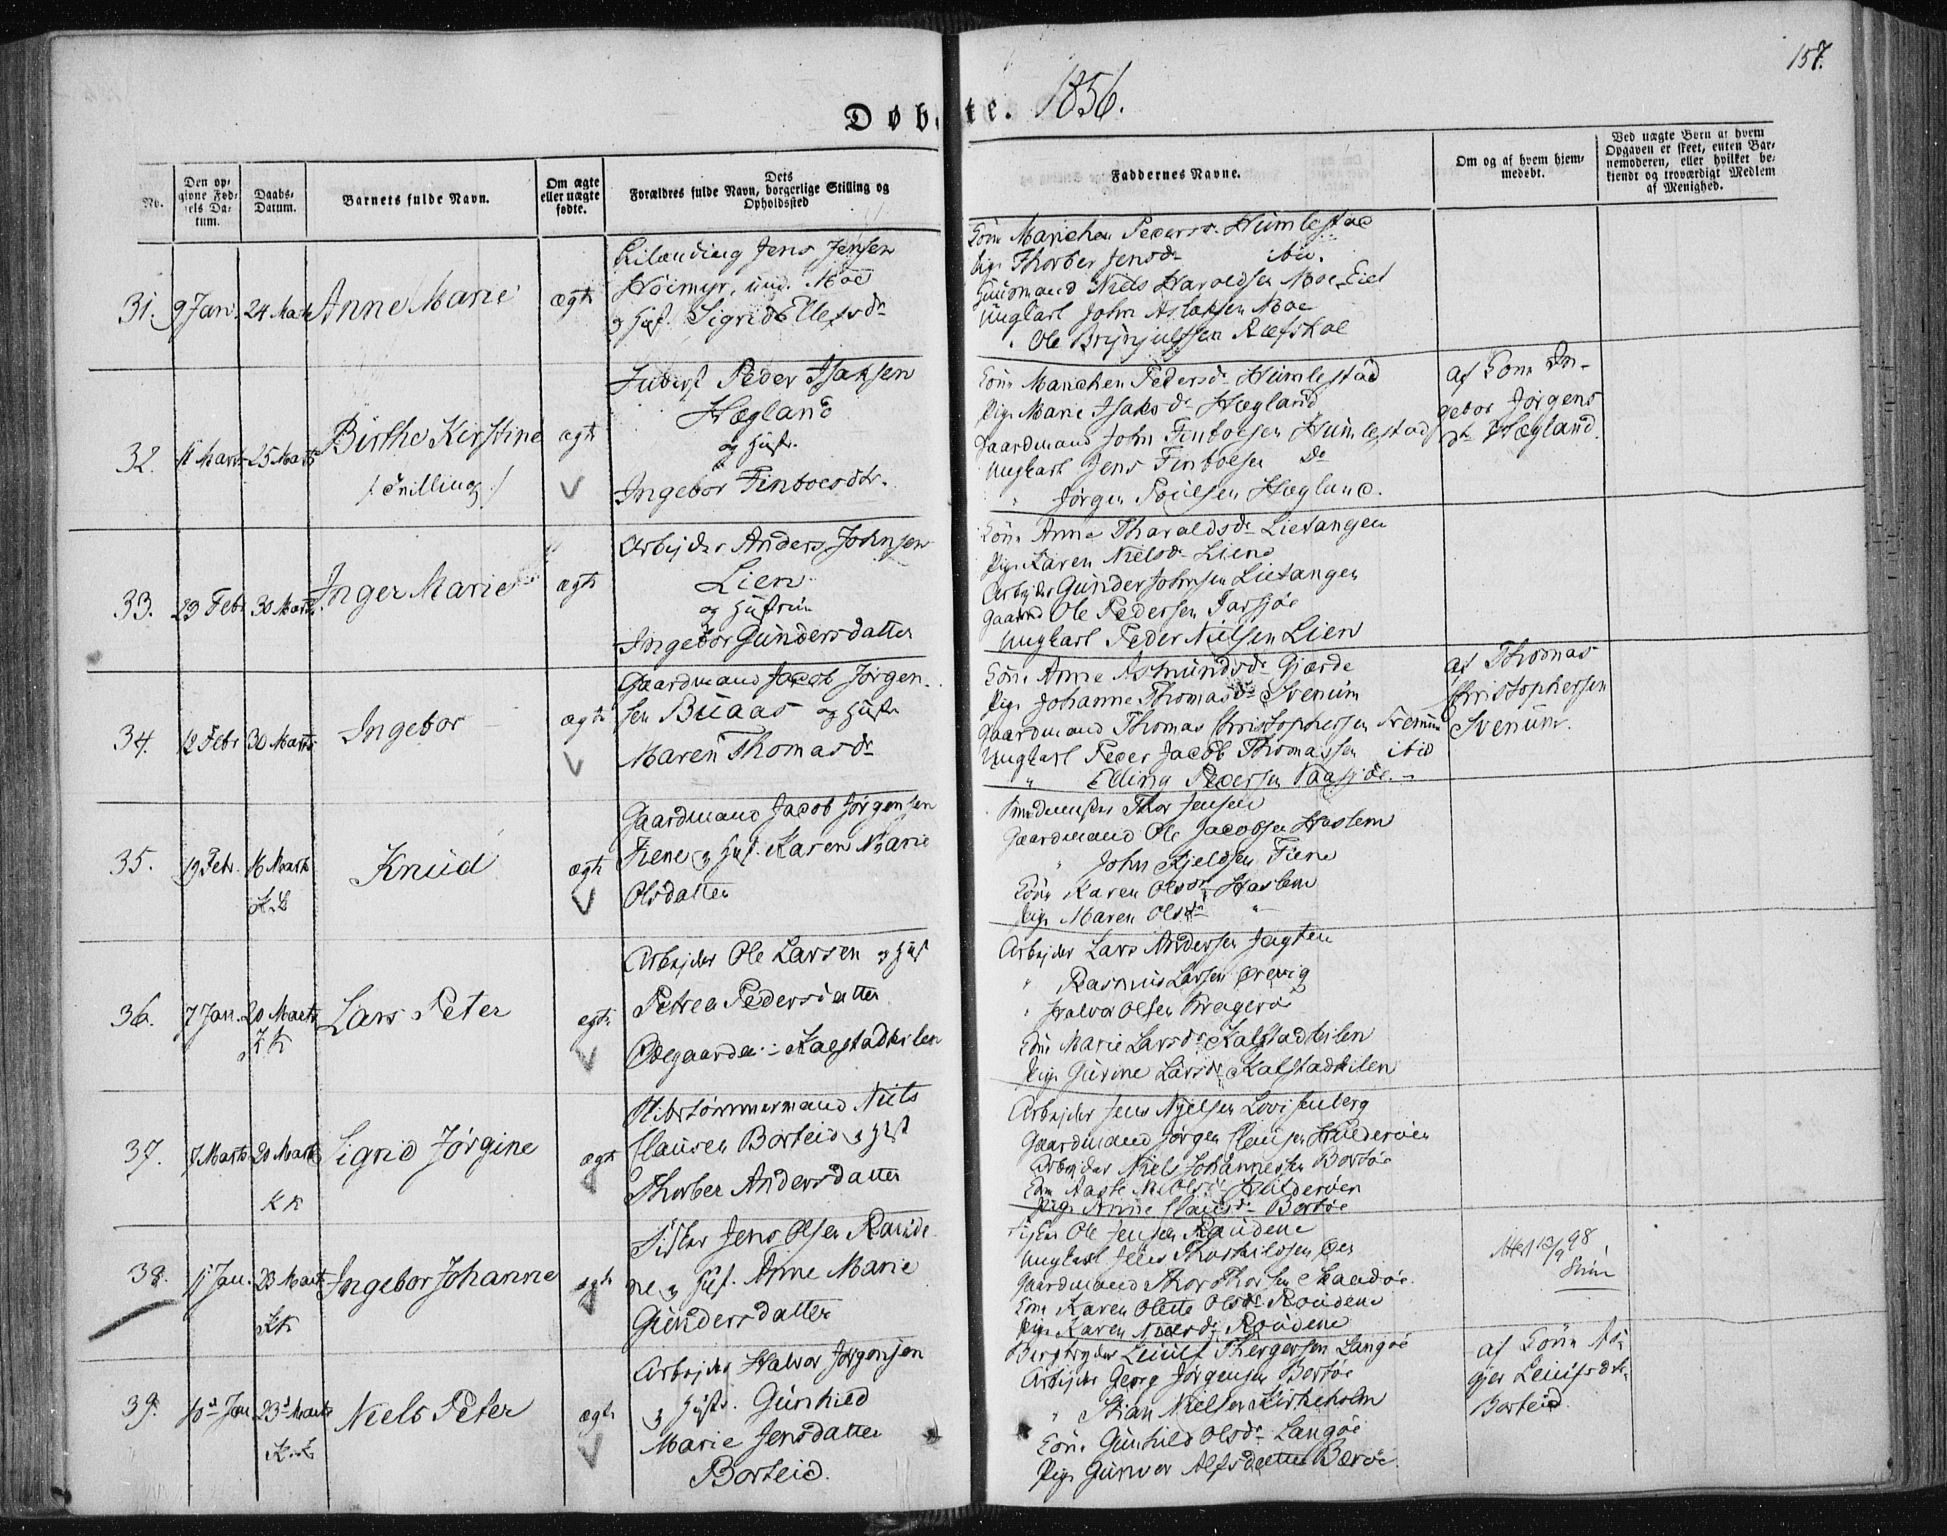 157.
Døbte. 1856.
No.
Den opgivne Fødsels Datum.
Daabs-Datum.
Barnets fulde Navn.
Om ægte eller uægte fødte.
Dets Forældres fulde Navn, borgerlige Stilling og Opholdssted
Faddernes Navne.
Om og af hvem hjemmedøbt.
Ved uægte Børn af hvem Opgaven er skeet, enten Barnemoderen, eller hvilket bekjendt og troværdigt Medlem af Menighed.
31. 9 Jan. 24 Marts Anne Marie ægte
Jens Jensen
Høimyr, und. Moe
og Hust. Sigrid Ellefsdr
Kone Marichen Pedersd. Humlestad
Pige Thorber Jensdr ibid.
Huusmand Niels Haroldsen Moe Eiet
Ungkarl John Aslaksen Moe
" Ole Brynjulfsen Refskoe
32. 11 Marts 25 Marts Birthe Kirstine ægte
/: Trilling :/
Inderst Peder Isaksen
Hegland
og Hustr.
Ingebor Finboesdtr.
Kone Marichen Pedersdr Humlestad
Pige Marie Isaksdr Hegland
Gaardmand John Finboesen Humlestad
Ungkarl Jens Finboesen Do
" Jørgen Poulsen Hegland.
af Kone In-
gebor Jørgens
dtr Hegland.
33. 23 Febr 30 Marts Inger Marie ægte
Arbejder Anders Johnsen
Lien
og Hustrue
Ingebor Gundersdatter
Kone Anne Tharaldsdr Lietangen
Pige Karen Nielsdr Liene
Arbejder Gunder Johnsen Lietangen
Gaardmd Ole Pedersen Farsjøe
Ungkarl Peder Nielsen Lien
34. 12 Febr 30 Marts Ingebor ægte
Gaardmand Jacob Jørgen-
sen Buaas og Hustr
Maren Thomasdr
Kone Anne Asmundsdr Gjerde
Pige Johanne Thomasdr Svenum
Gaardmand Thomas Christophersen Svenum
Ungkarl Peder Jacob Thomassen ibid
" Elling Pedersen
af Thomas
Christophersen
Svenum.
35. 19 Febr. 16 Marts Knud ægte
K.K
Gaardmand Jacob Jørgensen
Fiene og Hust. Karen Marie
Olsdatter
Thor Jensen
Gaardmand Ole Jacobsen Haslem
" John Kjeldsen Fiene
Kone Karen Olsdr Haslem
Pige Maren Olsdr "
36. 7 Jan. 20 Marts Lars Peter ægte
KK
Arbejder Ole Larsen og Hust
Petrea Pedersdatter
Odegaarden Kalstadkilen
Arbejder Lars Andersen Jagten
" Rasmus LarsenØrevig
" Halvor Olsen Kragerøe
Kone Marie Larsdr Kalstadkilen
Pige Gurine Larsdr Kalstadkilen
37. 7 Marts 20 Marts Sigrid Jørgine ægte
KK
Skibstømmermand Niels
Clausen Borteid og Hust
Thorber Andersdatter
Arbejder Jens Nielsen Lovisenberg
Gaardmand Jørgen Clausen Hulderøen
Arbejder Niels Johannesen Bortøe
Kone Aaste Nielsdr Hulderøen
Pige Anne Clausdr Bortøe
38. 11 Jan. 23 Marts Ingebor Johanne ægte
KK
Fisker Jens Olsen Raude-
ne og Hust. Anne Marie
Gundersdatter
Fisker Ole Jensen Raudene
Ungkarl Jens Thorkildsen Øen
Gaardmand Thor Thorsen Skaadøe.
Kone Karen Olette Olsdr Roudene
Pige Karen Nielsdr Roudene
Attest 13/9 98
39. 10de Jan 23de Marts Niels Peter ægte
K.K
Arbejder Halvor Jørgensen
og Hustr. Gunhild
Marie Jensdatter
Borteid.
Leiulf Thergersen Langøe
Arbejder Georg Jørgensen Bortøe
" Stian Nielsen Kirkeholm
Kone Gunhild Olsdr Langøe
Pige Gunvor Alfsdatter Berøe
af Kone As-
gjer Leiufsdtr.
Borteid.